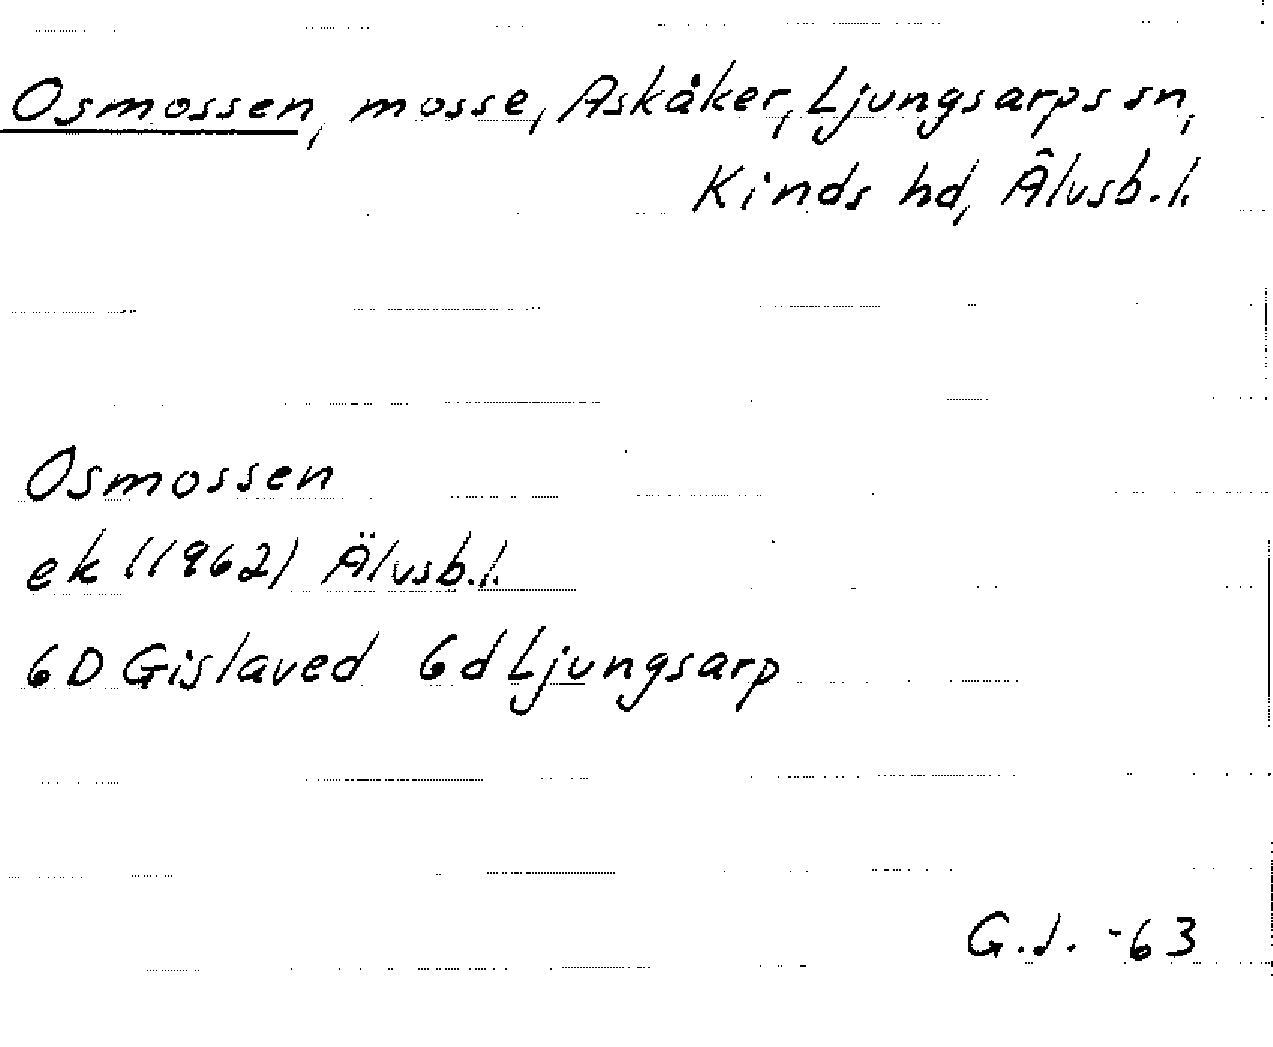 Osmossen, mosse, Askåker, Ljungsarps sn,
Kinds hd, Älvsb.l.
Osmossen
ek (1962) Älvsb.l.
6D Gislaved 6d Ljungsarp
G.J. -63